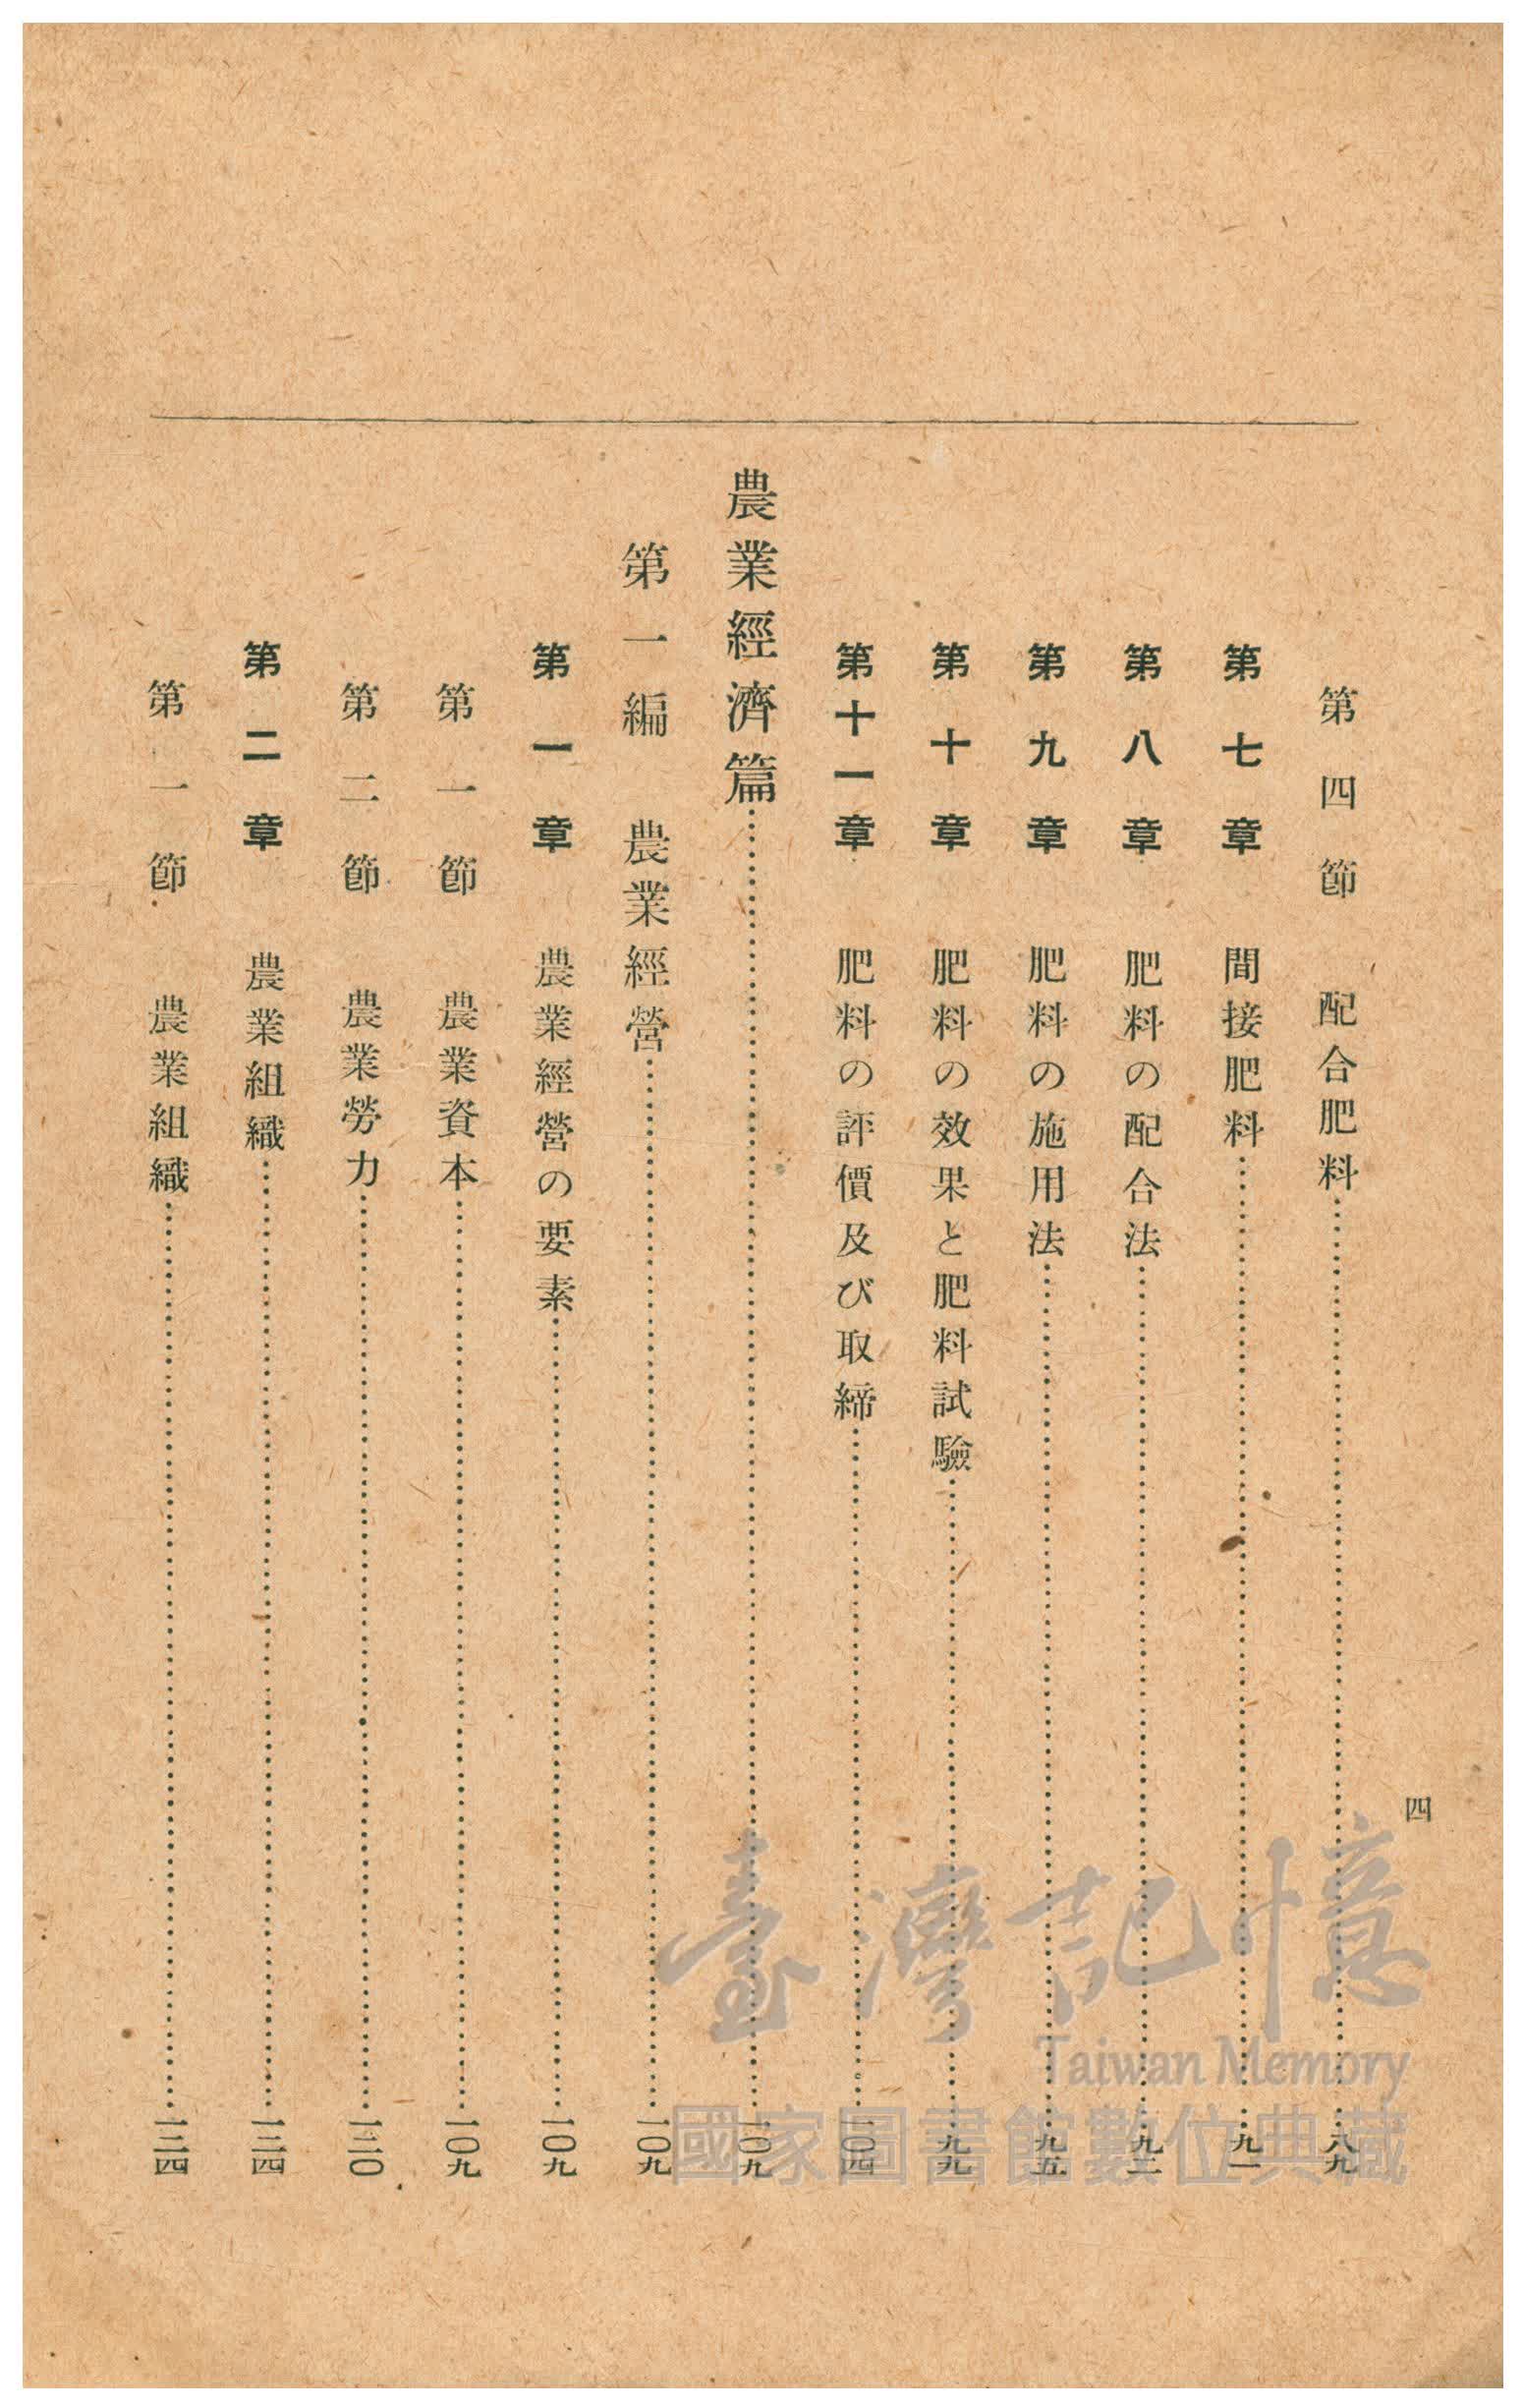 四
第四節 配合肥料……八九
第七章 間接肥料……九一
第八章 肥料の配合法……九二
第九章 肥料の施用法……九五
第十章 肥料の效果と肥料試驗……九九
第十一章 肥料の評價及び取締……一〇四
農業經濟篇……一〇九
第一編 農業經營……一〇九
第一章 農業經營の要素……一〇九
第一節 農業資本……一〇九
第二節 農業勞力……一二〇
第二章 農業組織……一二四
第一節 農業組織……一二四
臺灣記憶
Taiwan Memory
國家圖書館數位典藏